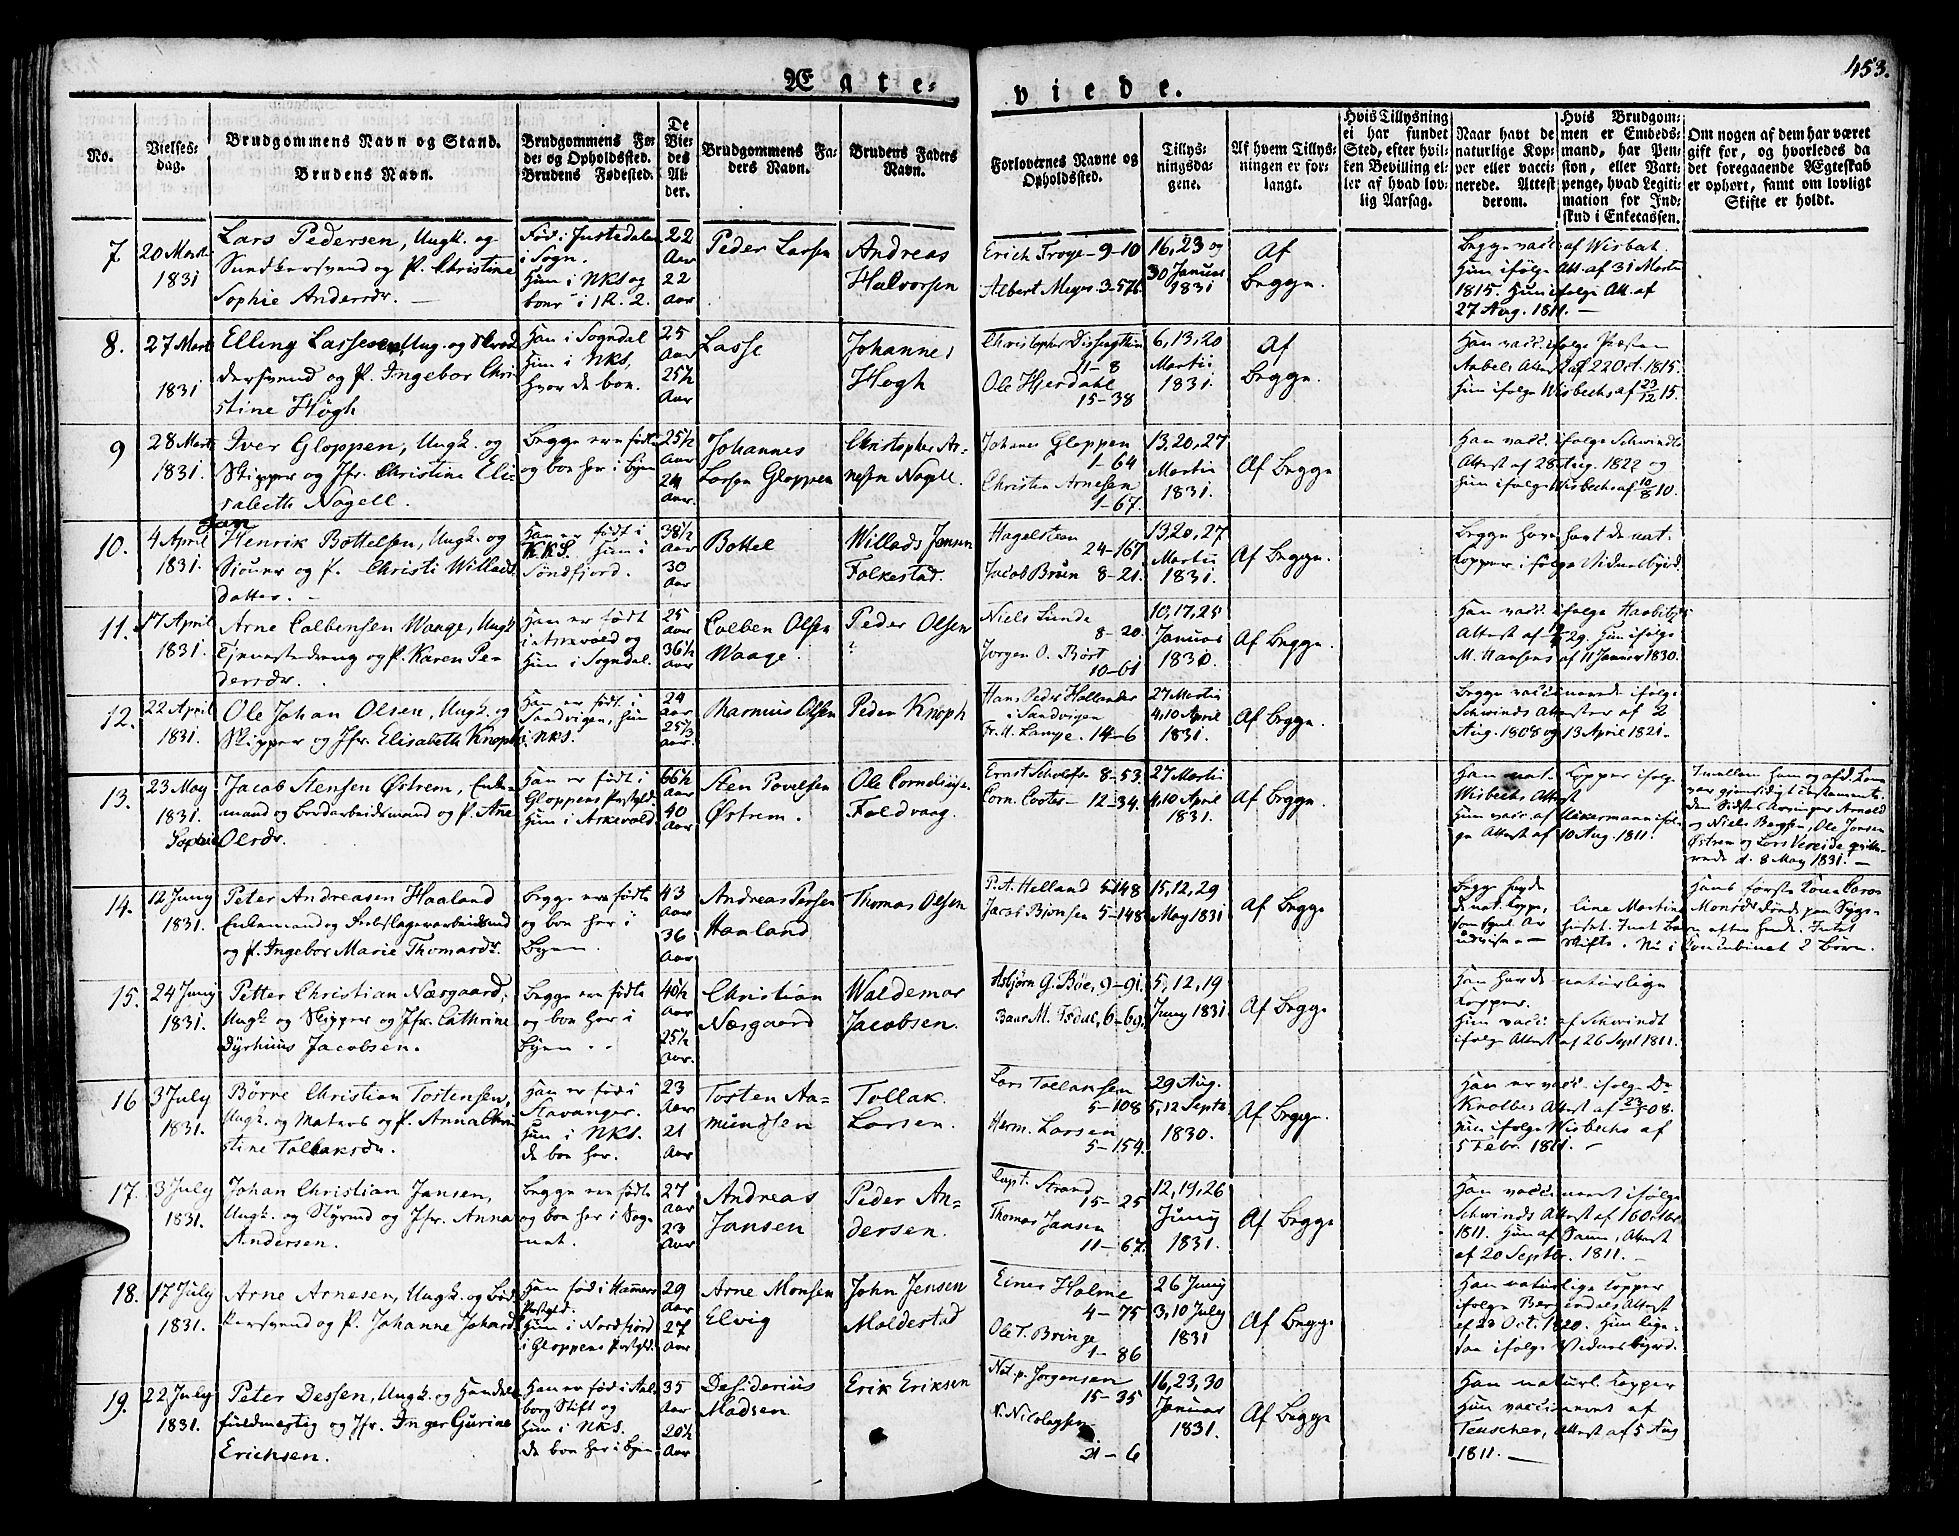 453.
Ægte-
viede.
No.
Vielses-
dag.
Brudgommens Navn og Stand.
Brudens Navn.
Brudgommens Fø-
de- og Opholdssted.
Brudens Fødested.
De
Vie-
des
Al-
der.
Brudgommens Fa-
ders Navn.
Brudens Faders
Navn.
Forlovernes Navne og
Opholdssted.
Tillys-
ningsda-
gene.
Af hvem Tillys-
ningen er for-
langt.
Hvis Tillysning
ei har fundet
Sted, efter hvil-
ken Bevilling el-
ler af hvad lov-
lig Aarsag.
Naar havt de
naturlige Kop-
per eller vacci-
nerede. Attest
derom.
Hvis Brudgom-
men er Embeds-
mand, har Pen-
sion, eller Vart-
penge, hvad Legiti-
mation for Ind-
skud i Enkecassen.
Om nogen af dem har været
gift før, og hvorledes da
det foregaaende Ægteskab
er ophørt, samt om lovligt
Skifte er holdt.
7
20 Marts
1831
Lars Pedersen, Ungk. og
og P. Christine
Sophie Andersdr. —
Fød i Justedalen
i Sogn.
Hun i NKS og
boer i 1 R. 2.
22
Aar
22
Aar
Peder Larsen
Andreas
Halvorsen
Erich Troye - 9-10
Albert Meyer 3-576.
16, 23 og
30 Januar
1831
Af
Begge.
Begge vacc. af Wisbech.
Han ifølge Att. af 31 Martii
1815. Hun ifølge Att. af
27 Aug. 1811. —
8.
27 Mart
1831
Elling Lassesen, Ung. og Skræd
dersvend og P. Ingebor Chri
stine Høgh
Han i Sogndal
Hun i NKS,
hvor de boe.
25
Aar
25½
Aar
Lasse
Johannes
Høgh
Christopher
11-8
Ole Hjerdahl
15-38
6, 13, 20
Martii
1831.
Af
Begge.
Han vacc. ifølge Præsten
Attest af 22 Oct. 1815.
Hun ifølge Wisbechs af 23/12 15.
9
28 Mart
1831.
Iver Gloppen, Ungk. og
Skipper og Jfr. Christine Eli-
sabeth Nagell.
Begge ere fødte
og boe her i Byen
25½
Aar
24
Aar.
Johannes
Larsen Gloppen
Christopher Ar-
nesen Nagell.
Johanes Gloppen
1-64
Christen Arnesen
1-67.
13, 20, 27
Martii
1831.
Af Begge
Han vacc. ifølge Schwindts
Attest af 28 Aug. 1822 og
Hun ifølge Wisbechs af 10/8 10.
10.
4 April
1831.
Henrik Bottelsen, Ungk. og
Siouer og P. Christi Willads
datter. —
Han er født i
KKS. Hun i
Søndfjord.
38½
Aar
30
Aar
Bottel
Willads Jensen
Folkestad.
Hagelsteen
24-167
Jacob Bruen 8-21.
13, 20, 27
Martii
1831.
Af Begge.
Begge have havt de nat.
Kopper ifølge Vidnesbyrd.
11.
17 April
1831.
Arne Colbensen Waage, Ungk.
Tjenestedreng og P. Karen Pe-
dersdr.
Han er født
i Askevold og
Hun i Sogndal.
25
Aar
36½
Aar
Colben Olsen
Waage.
Peder Olsen
Niels Lunde
8-20.
Jørgen O. Børt
10-61
10, 17, 25
Januar
1830.
Af Begge.
Han vacc. ifølge
Attest af 29. Hun ifølge
M. Hansens af 11 Januar 1830.
12.
22 April
1831.
Ole Johan Olsen, Ungk. og
Skipper og Jfr. Elisabeth Knoph
Han er født i
Sandvigen, Hun
i NKS.
24
Aar
25½
Aar.
Rasmus Olsen
Peder Knoph
Hans Peder Hollander
i Sandvigen
Fr. M. Lampe. 14-6
27 Martii
4, 10 April
1831.
Af Begge.
Begge vaccinerede ifølge
Schwinds Attester af 2
Aug. 1808 og 13 April 1821.
13.
23 May
1831.
Jacob Stensen Østrem, Enke-
mand og Bordarbeidsmand og P. Ane
Sophie Olsdr.
Han er født i
Gloppens Præstgld.
Hun i Askevold
66½
Aar
40
Aar
Sten Povelsen
Østrem.
Ole Corneliusen
Foldvaag.
Ernst Scholdsen 8-53.
Corn. Coster - 12-34.
27 Martii
4, 10 April
1831.
Af Begge.
Han nat. Kopper ifølge
Wisbechs Attest
Hun vacc. af Uckermann ifol-
ge Attest af 10 Aug. 1811.
Imellem ham og afd. Kone
var gjensidigt Testamente.
Den Sidstes Arvinger Arnold
og Niels Bergsen, Ole Jonsen
Østrem og Lars Vereide qvitte-
rede d. 8 May 1831. —
14.
12 Juny
1831.
Peter Andreasen Haaland
Enkemand og
og P. Ingebor Marie Thomasdr.
Begge ere fødte
og boe her i
Byen.
43
Aar
36
Aar
Andreas Persen
Haaland
Thomas Olsen
P. A. Helland 5-148
Jacob Bjørnsen 5-148
15, 12, 29
May 1831
Af Begge
Begge havde
de nat. Kopp.,
som Synet
udviser. —
Hans første Kone Caro-
line Martine Monsdr. døde paa Syge-
huset. Intet Barn efter hende. Intet
Skifte. Nu i Concubinat 2 Børn.
15.
24 Juny
1831.
Petter Christian Næsgaard,
Ungk. og Skipper og Jfr. Cathrine
Dyrhuus Jacobsen.
Begge ere fødte
og boe her i
Byen.
40½
Aar
25½
Aar.
Christian
Næsgaard
Waldemar
Jacobsen.
Asbjørn G. Bøe, 9-91.
Baar M. Isdal, 6-69.
5, 12, 19
Juny 1831
Af Begge
Han havde naturlige
Kopper.
Hun vacc. af Schwindt
ifølge Attest af 26 Sept. 1811.
16
3 July
1831.
Børre Christian Tostensen,
Ungk. og Matros og P. Anna Chri
stine Tollaksdr.
Han er fød i
Stavanger.
Hun i NKS.
de boe her.
23
Aar
21
Aar
Tosten Aa-
mundsen
Tollak
Larsen.
Lars Tollaksen
5-108
Herm. Larsen
5-154.
29 Aug.
5, 12 Septb.
1830.
Af Begge.
Han er vacc. ifølge Dr
Knolbes Attest af 08.
Hun ifølge Wisbechs af
5 Febr. 1811. —
17.
3 July
1831.
Johan Christian Jansen,
Ungk. og Styrmd og Jfr. Anna
Andersen.
Begge ere fødte
og boe her i Sog-
net.
27
Aar
23
Aar
Andreas
Jansen
Peder An-
dersen.
Capt. Strand
15-25
Thomas Jansen
11-67.
12, 19, 26
Juny
1831.
Af Begge
Han vaccineret ifølge
Schwinds Attest af 16 Octbr.
1811. Hun af Attest
af 20 Septbr. 1811. —
18.
17 July
1831.
Arne Arnesen, Ungk. og Bød-
kersvend og P. Johanne Johansdr.
Han fød i Hammers
Præstgld.
Hun i Nordfjord
i Gloppens Præstgld.
29
Aar
27
Aar
Arne Monsen
Elvig
John Jensen
Moldestad
Einer Holme
4-75
Ole T. Bringe
1-86
26 Juny
3, 10 July
1831
Af Begge
Han naturlige Kopper
ifølge Attest
af 20 Oct. 1820. Hun lige-
saa ifølge Vidnesbyrd.
19.
22 July
1831.
Peter Dessen, Ungk. og Handels-
fuldmegtig og Jfr. Inger Gurine
Erichsen.
Han er fød i Aal-
borg Stift og
Hun i NKS.
de boe her i Byen
35
Aar
20½
Aar
Desiderius
Madsen
Erik Eriksen
Nat. p. Jørgensen
15-35
N. Nicolaysen
21-6
16, 23, 30
Januar
1831.
Af Begge
Han naturl. Kopper
Hun vaccineret af
Teuscher, Attest af 5 Aug
1811. —